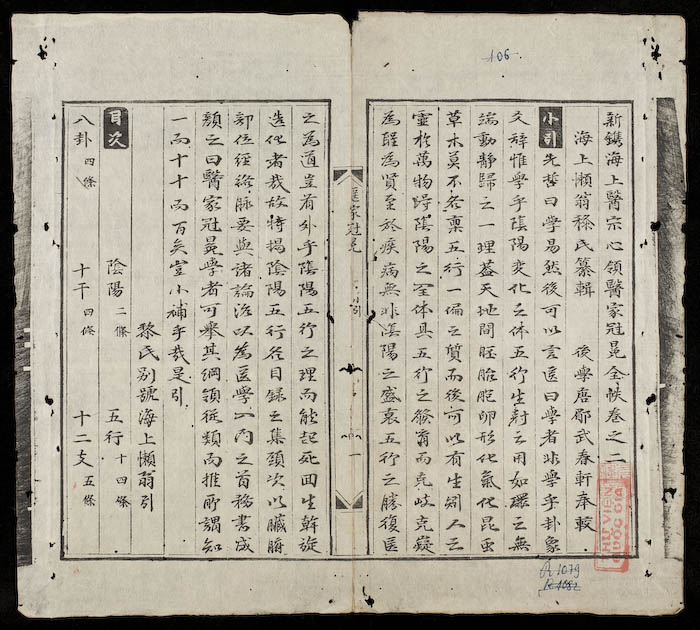 106
新鐫海上醫宗心領醫家冠冕全帙卷之二
海上懶翁黎氏纂輯 後學唐郿武春軒奉較
小引 先哲曰學易然後可以言医曰學者非學乎卦象
爻辞惟學乎陰陽变化之体五行生尅之用如環之無
端動静歸之一理蓋天地間胚胎胞卵形化氣化昆虫
草木莫不各稟五行一偏之質而後可以有生矧人之
霊於萬物得陰陽之全体具五行之發育而克岐克嶷
為聖為賢至於疾病無非陰陽之盛衰五行之勝復医
醫家冠冕
小引
一
之為道豈有外乎陰陽五行之理而能起死回生斡旋
造化者哉故特揭陰陽五行各目録之集類次以臟腑
部位經絡脉要與諸論治以為医學入門之首務書成
顏之曰醫家冠冕學者可舉其綱領従類而推所謂知
一而十十而百矣豈小補乎哉是引
黎氏别號海上懶翁引
目次
陰陽 二條 五行 十四條
八卦 四條 十干 四條 十二支 五條
THƯ VIỆN
QUỐC GIA
R 1079
R 1082